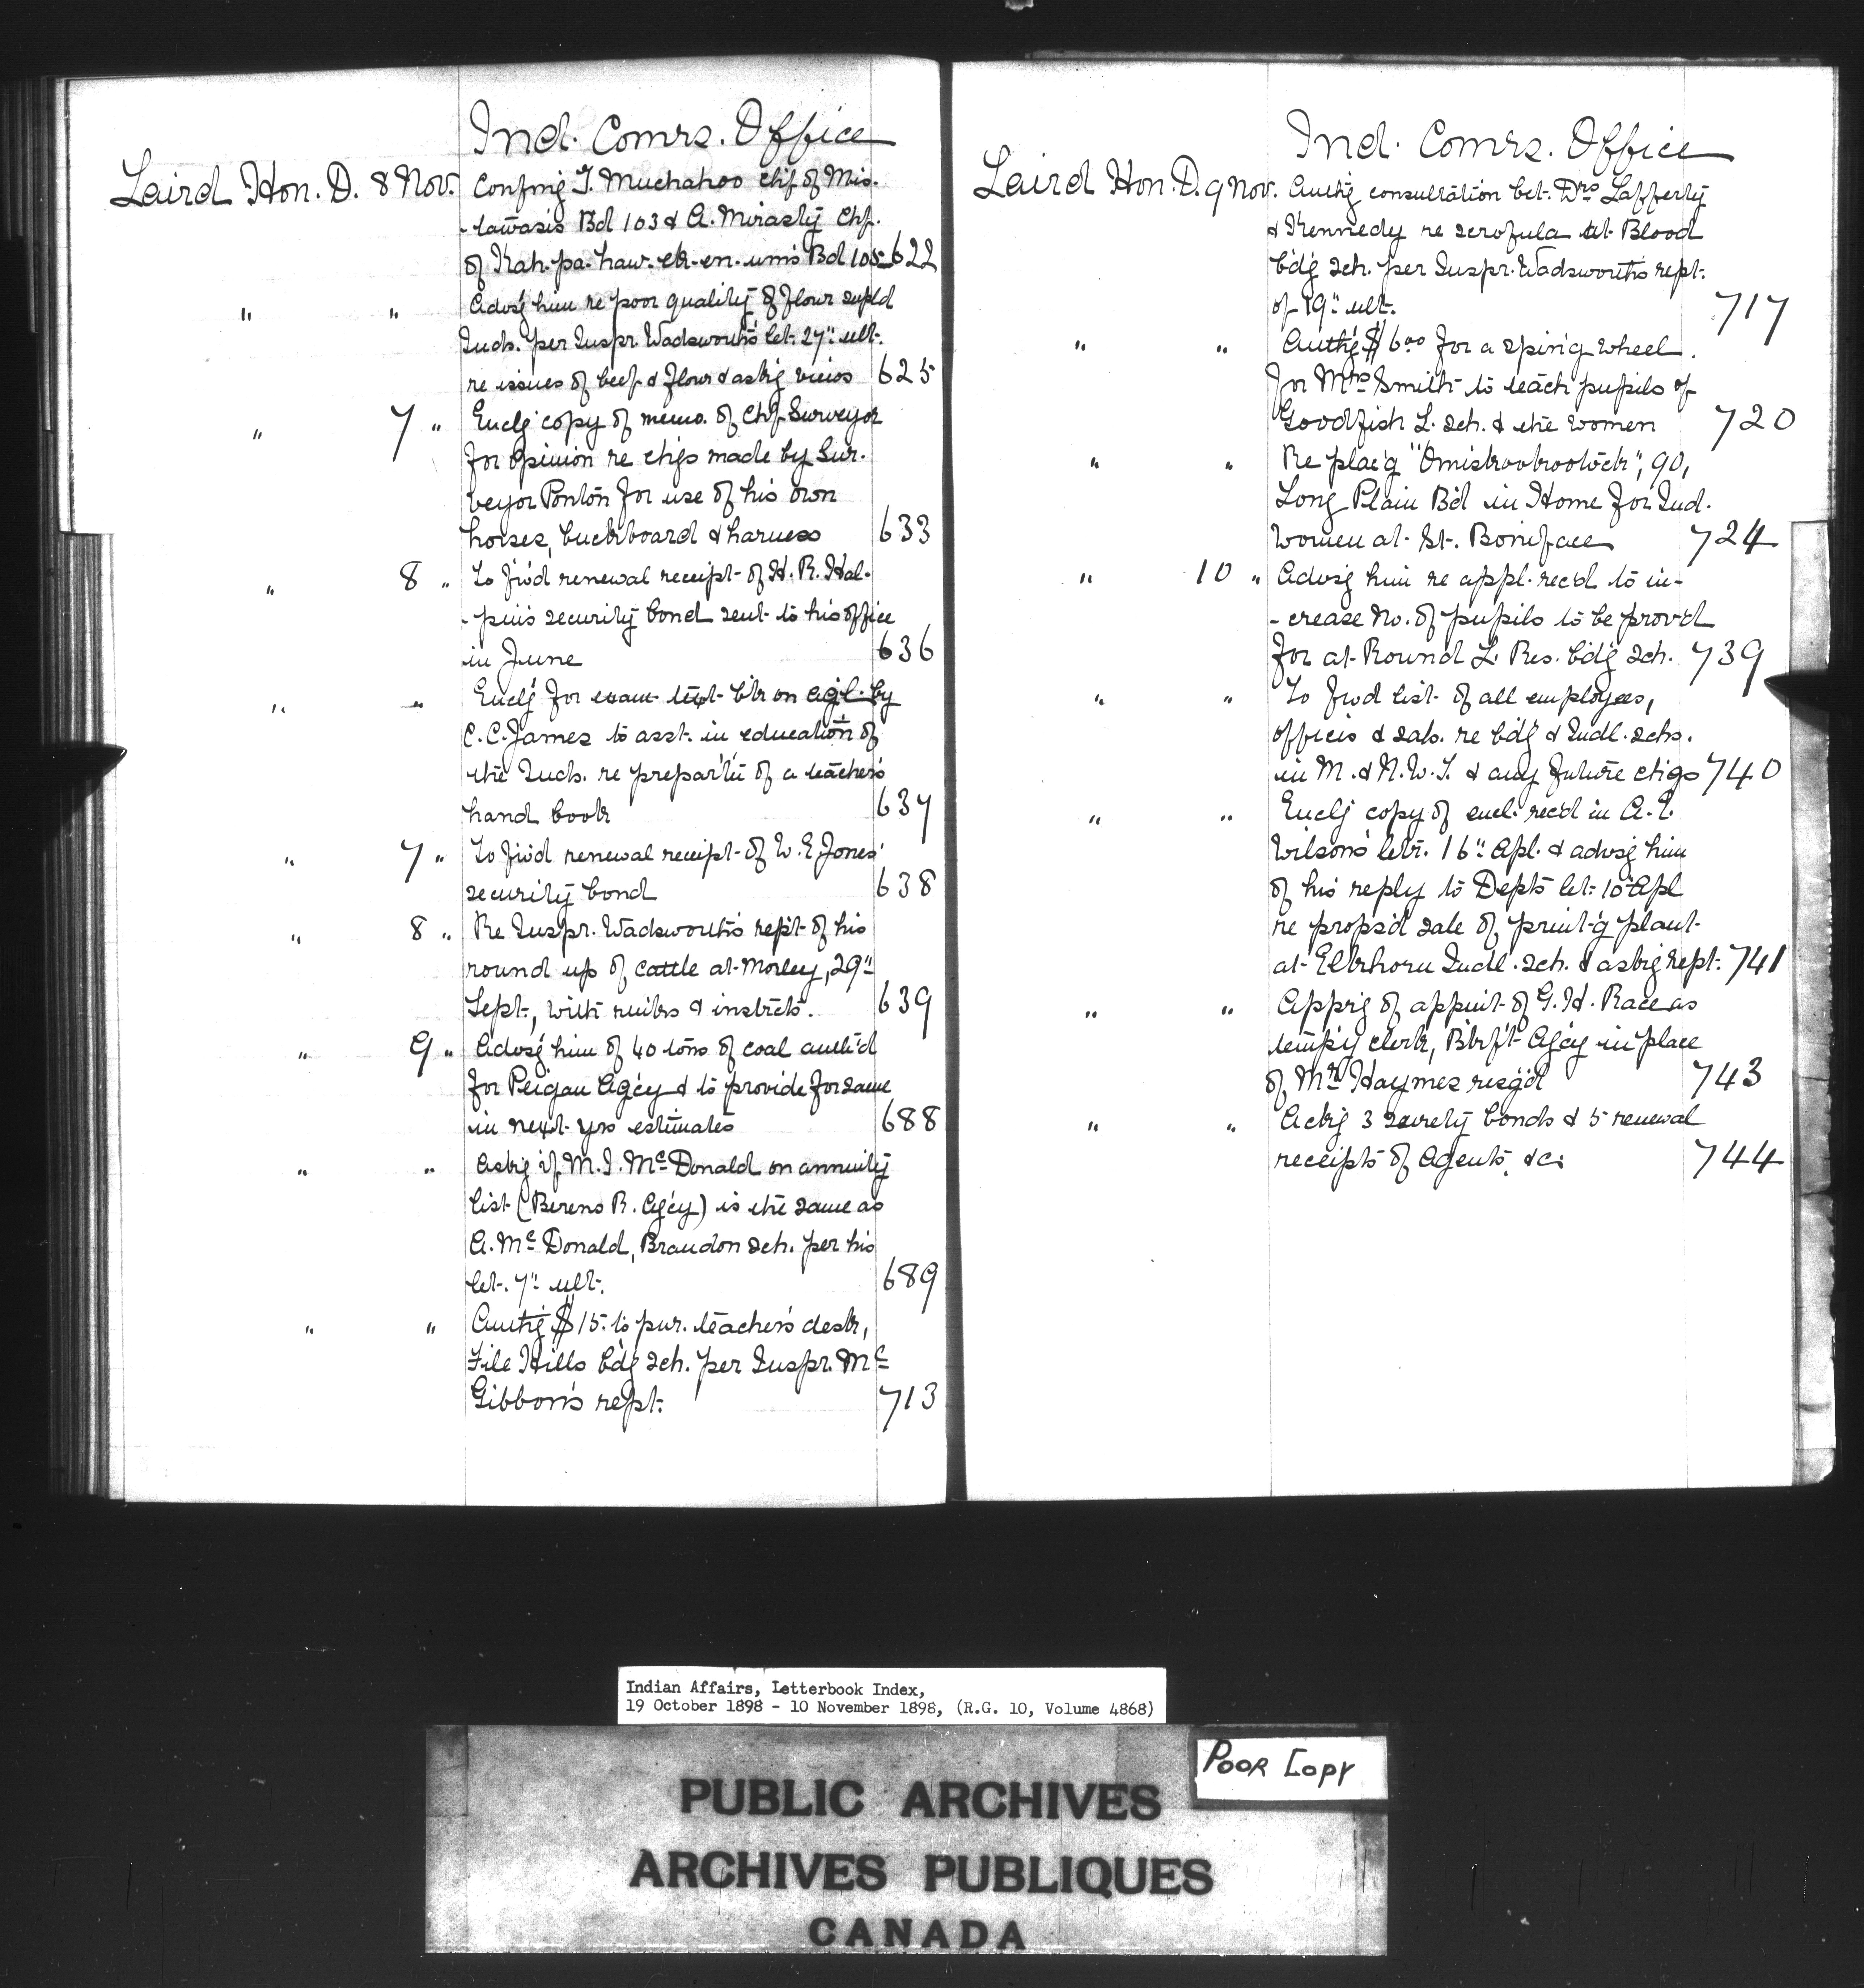 Ind. Comrs. Office
Laird Hon. D. 8 Nov. Confmg J. Muchahoo chf of Mis-
-tawasis Bd 103 & A. Mirasty Chf.
of Kah-pa-haw-ek-en-um's Bd 105 622
" " Advsg him re poor quality of flour supld
Inds. per Inspr. Wadsworth's let. 27" ult.
re issues of beef & flour & askg views 625
" 7 " Enclg copy of memo. of Chf Surveyor
for opinion re chgs made by Sur-
veyor Ponton for use of his own
horses, buckboard & harness 633
" 8 " To fwd renewal receipt of H. R. Hal-
-pin's security bond sent to his office
in June 636
" " Enclg for exam. text bk on agl. by
C. C. James to asst. in education of
the Inds. re prepar'tn of a teacher's
hand book 637
" 7 " To fwd renewal receipt of W. E. Jones'
security bond 638
" 8 " Re Inspr. Wadsworth's rept of his
round up of cattle at Morley, 29"
Sept., with rmks & instrcts. 639
" 9 " Advsg him of 40 tons of coal auth'd
for Peigan Agcy & to provide for same
in next yrs estimates 688
" " Askg if M. J. McDonald on annuity
list (Berens R. Agcy) is the same as
A. McDonald, Brandon sch. per his
let. 7" ult. 689
" " Authg $15. to pur. teacher's desk,
File Hills bdg sch. per Inspr. Mc
Gibbon's rept. 713
Ind. Comrs. Office
Laird Hon. D. 9 Nov. Authg consultation bet. Drs Lafferty
& Kennedy re scrofula at Blood
bdg sch. per Inspr. Wadsworth's rept.
of 19" ult. 717
" " Authg $6.00 for a spin'g wheel
for Mrs Smith to teach pupils of
Goodfish L. sch. & the women 720
" " Re plac'g "Omiskookootock", 90,
Long Plain Bd in Home for Ind.
Women at St. Boniface 724
" 10 " Advsg him re appl. rec'd to in-
-crease No. of pupils to be prov'd
for at Round L. Res. bdg sch. 739
" " To fwd list of all employees,
offices & sals. re bdg & Indl. schs.
in M. & N. W. T. & any future chgs 740
" " Enclg copy of encl. rec'd in A. E.
Wilson's letr. 16" Apl. & advsg him
of his reply to Dept's let. 10" Apl
re propos'd sale of print'g plant
at Elkhorn Indl. sch. & askg rept. 741
" " Apprg of appnt of G. H. Race as
temp'y clerk, Bkft Agcy in place
of Mr Haymes resg'd 743
" " Ackg 3 surety bonds & 5 renewal
receipts of Agents, &c. 744
Indian Affairs, Letterbook Index,
19 October 1898 - 10 November 1898, (R.G. 10, Volume 4868)
POOR COPY
PUBLIC ARCHIVES
ARCHIVES PUBLIQUES
CANADA